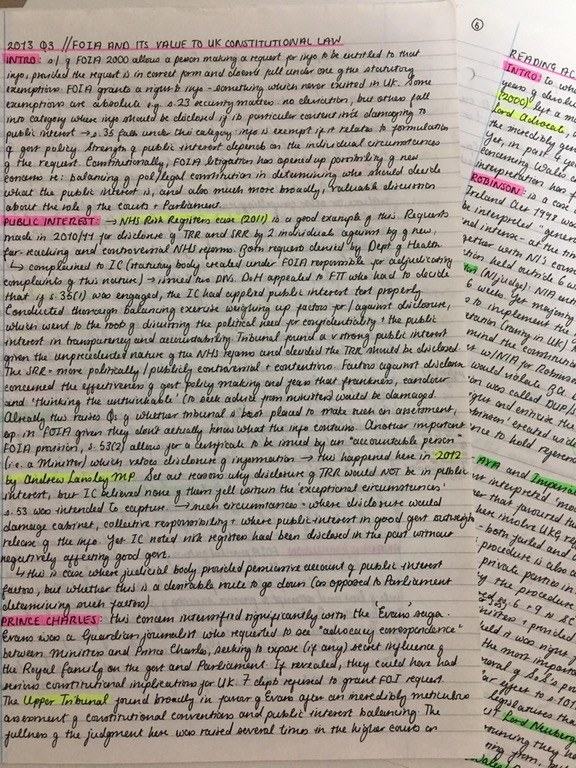 2013 Q3 // FOIA AND ITS VALUE TO UK CONSTITUTIONAL LAW
INTRO: s.1 of FOIA 2000 allows a person making a request for info to be entitled to that
info, provided the request is in correct form and doesn't fall under one of the statutory
exemptions. FOIA grants a right to info - something which never existed in UK. Some
exemptions are absolute e.g. s.23 security matters - no elevation, but others fall
into category where info should be disclosed if its particular content isn't damaging to
public interest → s.35 falls under this category: info is exempt if it relates to formulation
of govt policy. Strength of public interest depends on the individual circumstances
of the request. Constitutionally, FOIA litigation has opened up possibility of new
concerns re: balancing of pol/legal constitution in determining who should decide
what the public interest is, and also much more broadly, valuable discussion
about the role of the courts + Parliament.
PUBLIC INTEREST: → NHS Risk Registers case (2011) is a good example of this. Requests
made in 2010/11 for disclosure of TRR and SRR by 2 individuals against by new,
far-reaching and controversial NHS reforms. Both requests denied by Dept of Health
↳ complained to IC (statutory body created under FOIA responsible for adjudicating
complaints of this nature) → issued two DNs. DoH appealed to FTT who had to decide
that if s.35(1) was engaged, the IC had applied public interest test properly.
Conducted thorough balancing exercise weighing up factors for/against disclosure,
which went to the root of discussing the political need for confidentiality + the public
interest in transparency and accountability. Tribunal found a v strong public interest
given the unprecedented nature of the NHS reforms and decided the TRR should be disclosed.
The SRR = more politically/publicly controversial + contentious. Factors against disclosure
concerned the effectiveness of govt policy making and fears that frankness, candour
and 'thinking the unthinkable' (to seek advice from ministers) would be damaged.
Already this raises Qs of whether tribunal is best placed to make such an assessment,
esp in FOIA given they don't actually know what the info contains. Another important
FOIA provision, s.53(2) allows for a certificate to be issued by an "accountable person"
(i.e. a Minister) which vetoes disclosure of information → this happened here in 2012
by Andrew Lansley MP. Set out reasons why disclosure of TRR would NOT be in public
interest, but IC believed none of them fell within the 'exceptional circumstances'
s.53 was intended to capture. → such circumstances = where disclosure would
damage cabinet, collective responsibility + where public interest in good govt outweighs
release of the info. Yet IC noted risk registers had been disclosed in the past without
negatively affecting good govt.
↳ this is case where judicial body provided persuasive account of public interest
factors, but whether this is a desirable route to go down (as opposed to Parliament
determining such factors)
PRINCE CHARLES: this concern intensified significantly with the 'Evans' saga.
Evans was a Guardian journalist who requested to see "advocacy correspondence"
between Ministers and Prince Charles, seeking to expose (if any) secret influence of
the Royal Family on the govt and Parliament. If revealed, they could have had
serious constitutional implications for UK. 7 depts refused to grant FOI request.
The Upper Tribunal found broadly in favour of Evans after an incredibly meticulous
assessment of constitutional conventions and public interest balancing. The
fullness of the judgment here was raised several times in the higher courts as
6
READING AC
INTRO: to wh
years of devolu
(2000)
Lord Advocate
the incredibly gener
Yet, in part
concerning Wales
interpretation has
ROBINSON: is a case
Ireland Act 1998
be interpreted "gener
6 weeks. Yet majority
to implement the
mind the constitution
w/NIA for Robinson
would violate
was called DUP
and criticise the
to hold refere
AXA and Imperial
interpret
that favoured
here involve UKG,
both failed and
procedure is also
private parties in
the procedure
s.6 + 9 in SC
ministers + provided
held it was right
the most importa
effect to s.101
legislatures tha
Lord Neuberg